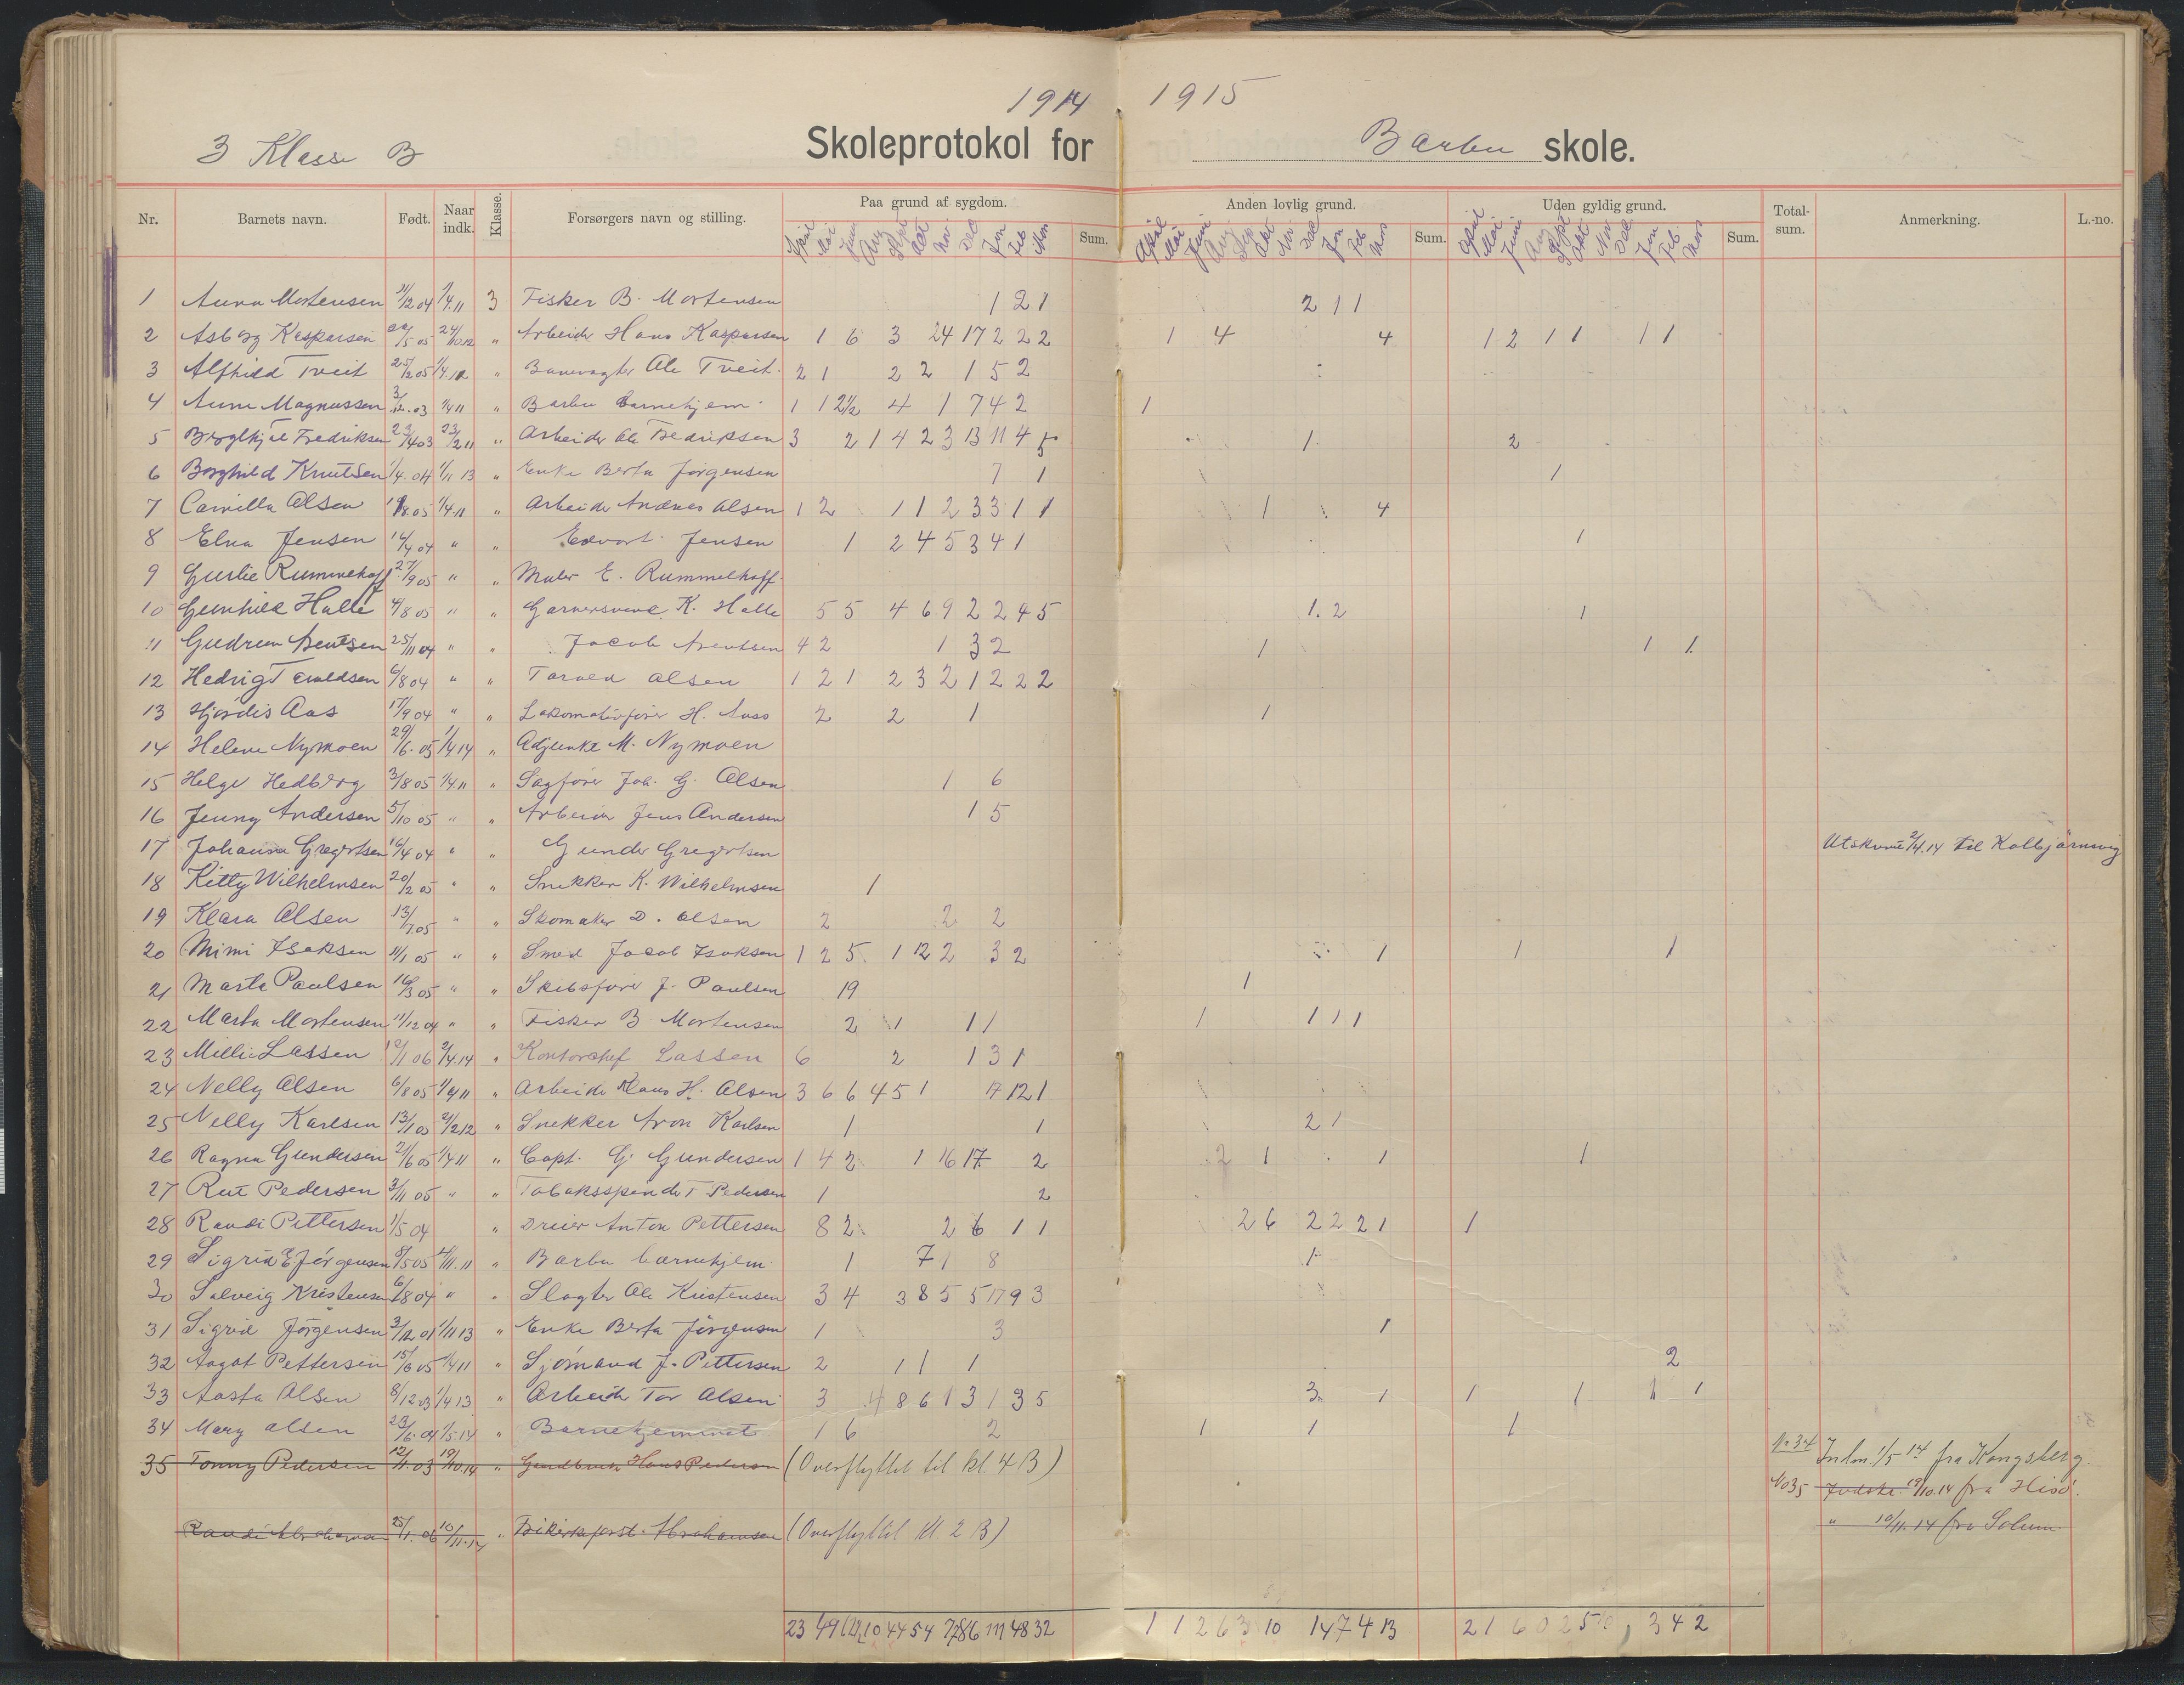 1914 1915
3 Klasse B Skoleprotokol for Barbu skole.
Nr. Barnets navn. Født. Naar indk. Klasse. Forsørgers navn og stilling. Paa grund af sygdom. Sum. Anden lovlig grund. Sum. Uden gyldig grund. Sum. Total-sum. Anmerkning. L.-no.
April Mai Juni Aug Sept Okt Nov Dec Jan Feb Mars April Mai Juni Aug Sep Okt Nov Dec Jan Feb Mars April Mai Juni Aug Sept Okt Nov Dec Jan Feb Mars
1 Anna Mortensen 11/12 04 1/4.11 3 Fisker B. Mortensen 1 2 1 2 1 1
2 Asborg Kaspersen 24/10 12 " Arbeider Hans Kaspersen 1 6 3 24 17 2 2 2 1 4 4 1 2 1 1 1 1
3 Alfhild Tveit 25/12 05 1/4.12 " Banevagter Ole Tveit. 2 1 2 2 1 5 2
4 Anne Magnussen 3/12.03 1/4 11 " Barbu barnehjem 1 1 2½ 4 1 7 4 2 1
5 Fredriksen 23/4 03 23/2 11 " Arbeider Ole Fredriksen 3 2 1 4 2 3 13 11 4 5 1 2
6 Borghild Knutsen 1/4.04 1/11 13 " Enke Berta Jørgensen 7 1 1
7 Camilla Olsen 1/4.11 " Arbeider Andreas Olsen 1 2 1 1 2 3 3 1 1 1 4
8 Elna Jensen 14/4 04 " " Edvart Jensen 1 2 4 5 3 4 1 1
9 Gurlie Rummelhoff 27/9 05 " " Maler E. Rummelhoff
10 Gunhild Halle 4/8 05 " " Garversvend K. Halle 5 5 4 6 9 2 2 4 5 1. 2 1
11 Gudrun Arentsen 25/11 04 " " Jacob Arentsen 4 2 1 3 2 1 1 1
12 Hedvig Tarvaldsen 6/8 04 " " Tarald Olsen 1 2 1 2 3 2 1 2 2 2
13 Hjørdis Aas 17/9 04 " " Lokomotivfører H. Aass 2 2 1 1
14 Helene Nymoen 29/6. 05 1/4 14 " Adjunkt M. Nymoen
15 Helge Hedberg 3/8 05 1/4.11 " Sagfører Joh. G. Olsen 1 6
16 Jenny Andersen 5/10 05 " " Arbeider Jens Andersen 1 5
17 Johanna Gregertsen 16/4 04 " " Gunder Gregertsen Utskrevet 2/4.14 til Kolbjørnsvig
18 Kitty Wilhelmsen 20/2 05 " " Snekker K. Wilhelmsen 1
19 Klara Olsen 13/7.05 " " Skomaker D. Olsen 2 2 2
20 Mimi Isaksen 11/1 05 " " Smed Jacob Isaksen 1 2 5 1 12 2 3 2 1 1 1
21 Marta Paulsen 16/3 05 " " Skibsfører J. Paulsen 19 1
22 Marta Mortensen 11/12 04 " " Fisker B Mortensen 2 1 1 1 1 1 1 1
23 Milli Lassen 12/1 06 2/4.14 " Kontorchef Lassen 6 2 1 3 1
24 Nelly Olsen 6/8 05 1/4 11 " Arbeider Klaus H. Olsen 3 6 6 4 5 1 17 12 1
25 Nelly Karlsen 13/1 05 21/2 12 " Snekker Aron Karlsen 1 1 2 1
26 Ragna Gundersen 21/6 05 1/4 11 " Capt. G. Gundersen 1 4 2 1 16 17 2 2 1 1 1
27 Rut Pedersen 3/11 05 " " Tobaksspinder T Pedersen 1 2
28 Randi Pettersen 1/5 04 " Dreier Anton Pettersen 8 2 2 6 1 1 2 6 2 2 2 1 1
29 Sigrid E Jørgensen " Barbu barnehjem 1 7 1 8 1
30 Solveig Kristensen 6/8 04 " " Slagter Ole Kristensen 3 4 3 8 5 5 17 9 3
31 Sigrid Jørgensen 3/12 01 1/11 13 " Enke Berta Jørgensen 1 3 1
32 Aagot Pettersen 15/6 05 1/4 11 " Sjømand J. Pettersen 2 1 1 1 2
33 Aasta Olsen 8/12 03 1/4 13 " Arbeider Tor Olsen 3 4 8 6 1 3 1 3 5 3 1 1 1 1 1
34 Mary Olsen 23/6.04 1/5.14 " Barnehjemmet 1 6 2 1 1 1
No 34 Indm. 1/5 14 fra Kongsberg.
35 Tonny Pedersen 12/1.03 19/10.14 " Hans Pedersen (Overflyttet til kl. 4 B)
No 35 19/10.14 fra Hisø.
Randi Abrahamsen 25/1.06 10/11.14 " Abrahamsen (Overflyttet kl. 2 B) " 10/11.14 fra Solum
23 49 10 44 54 111 48 32 1 1 2 6 3 10 14 7 4 13 2 1 6 0 2 5 3 4 2